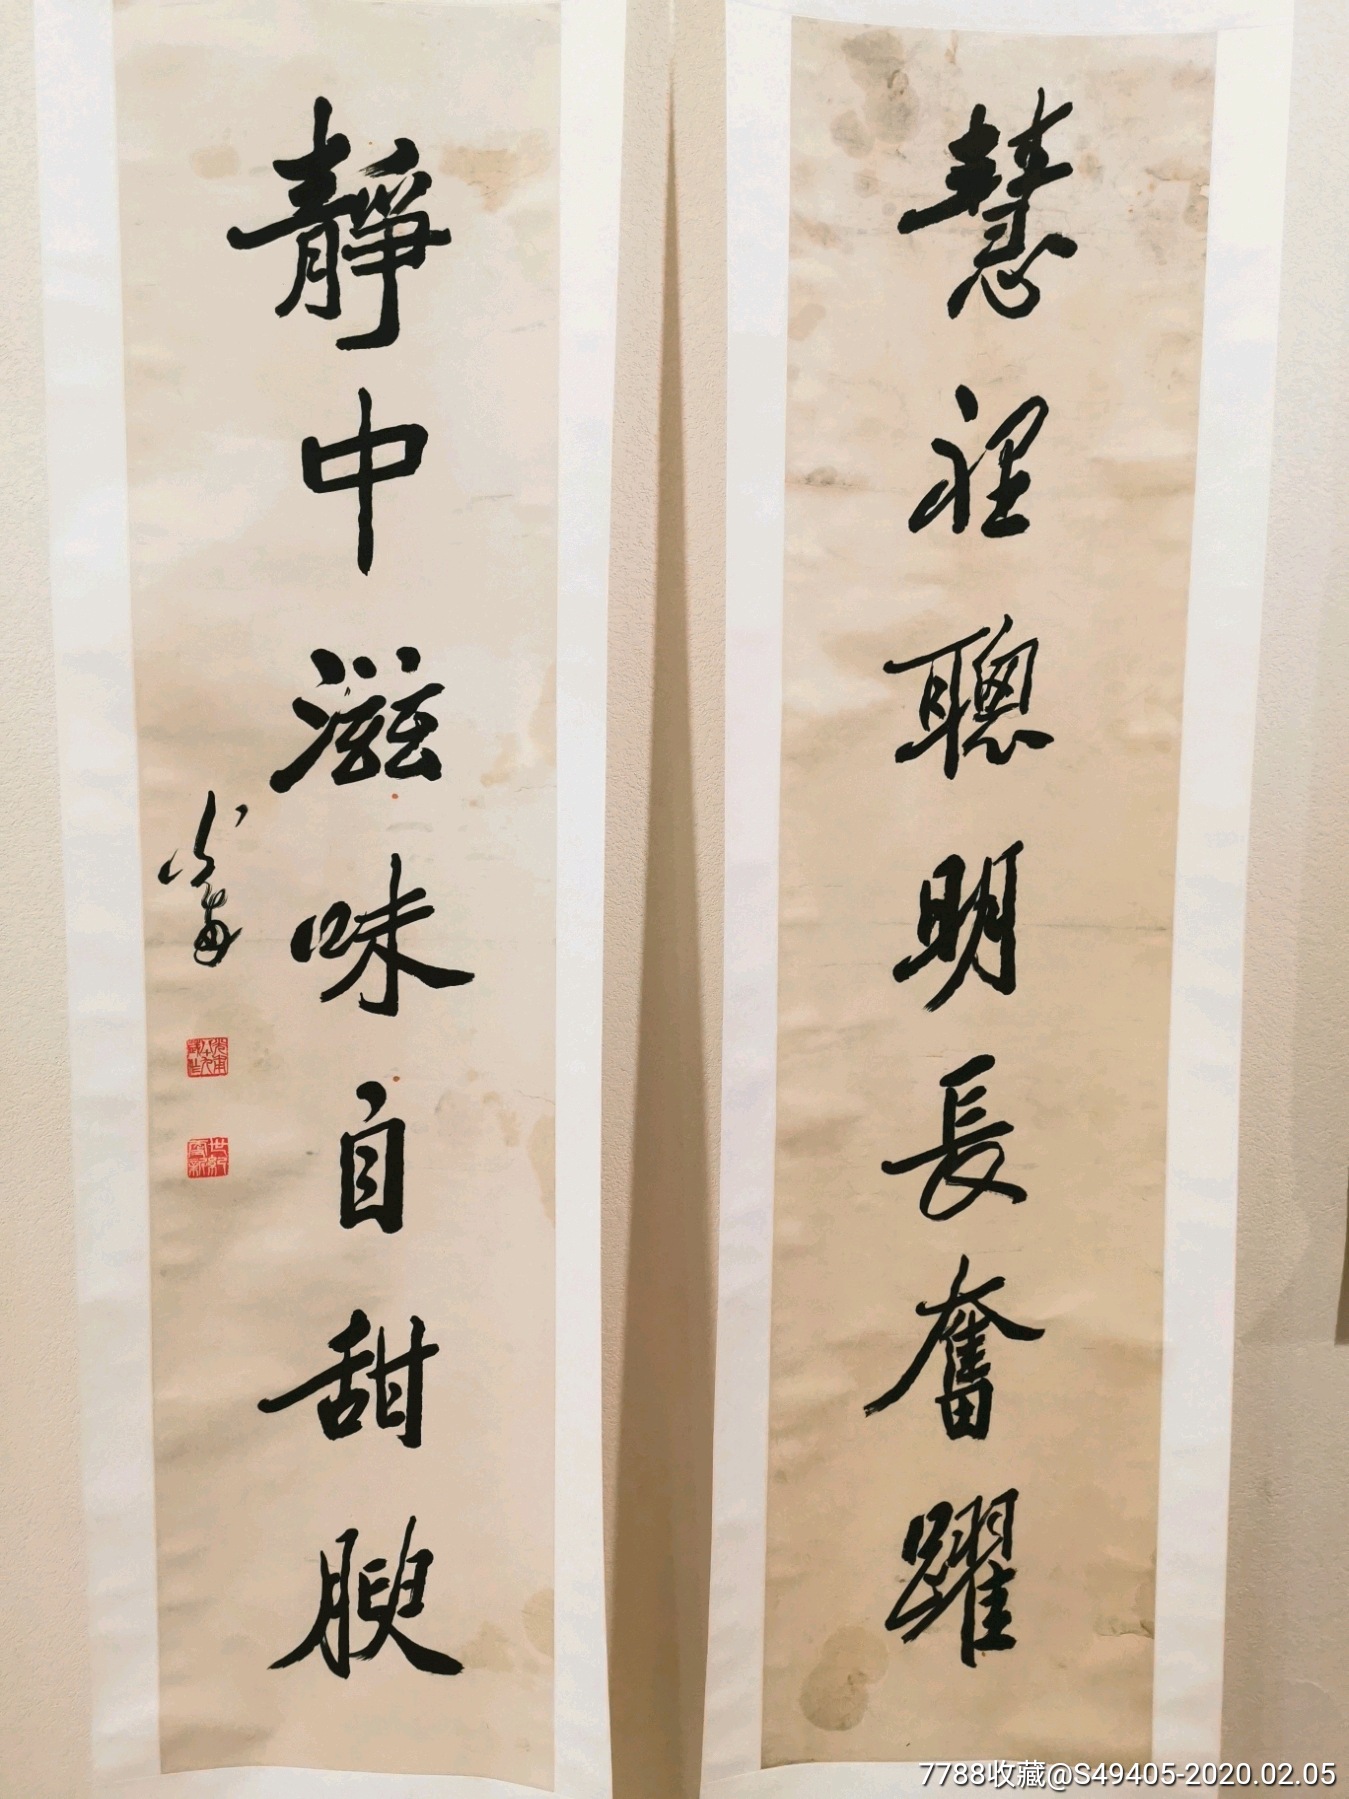 慧裡聰明長奮躍
靜中滋味自甜腴
心畬
7788收藏@S49405-2020.02.05